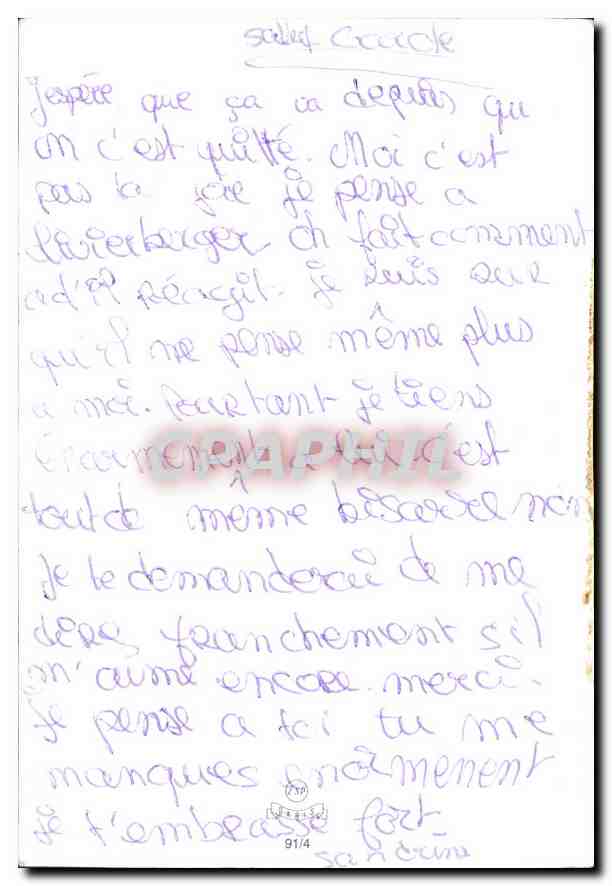 salut
J'espère que ça va depuis qu
on c'est quitté. Moi c'est
pas la joie je pense a
Olivierberger. oh fait comment
a t'il réagit. je suis sur
qu'il ne pense même plus
a moi. Pourtant je tiens
énormement a lui c'est
tout de même bisarre non
Je te demanderai de me
dire franchement s'il
m'aime encore. merci.
Je pense a toi tu me
manques enormement
je t'embrasse fort
sandrine
CPAPHIL
PARIS
91/4